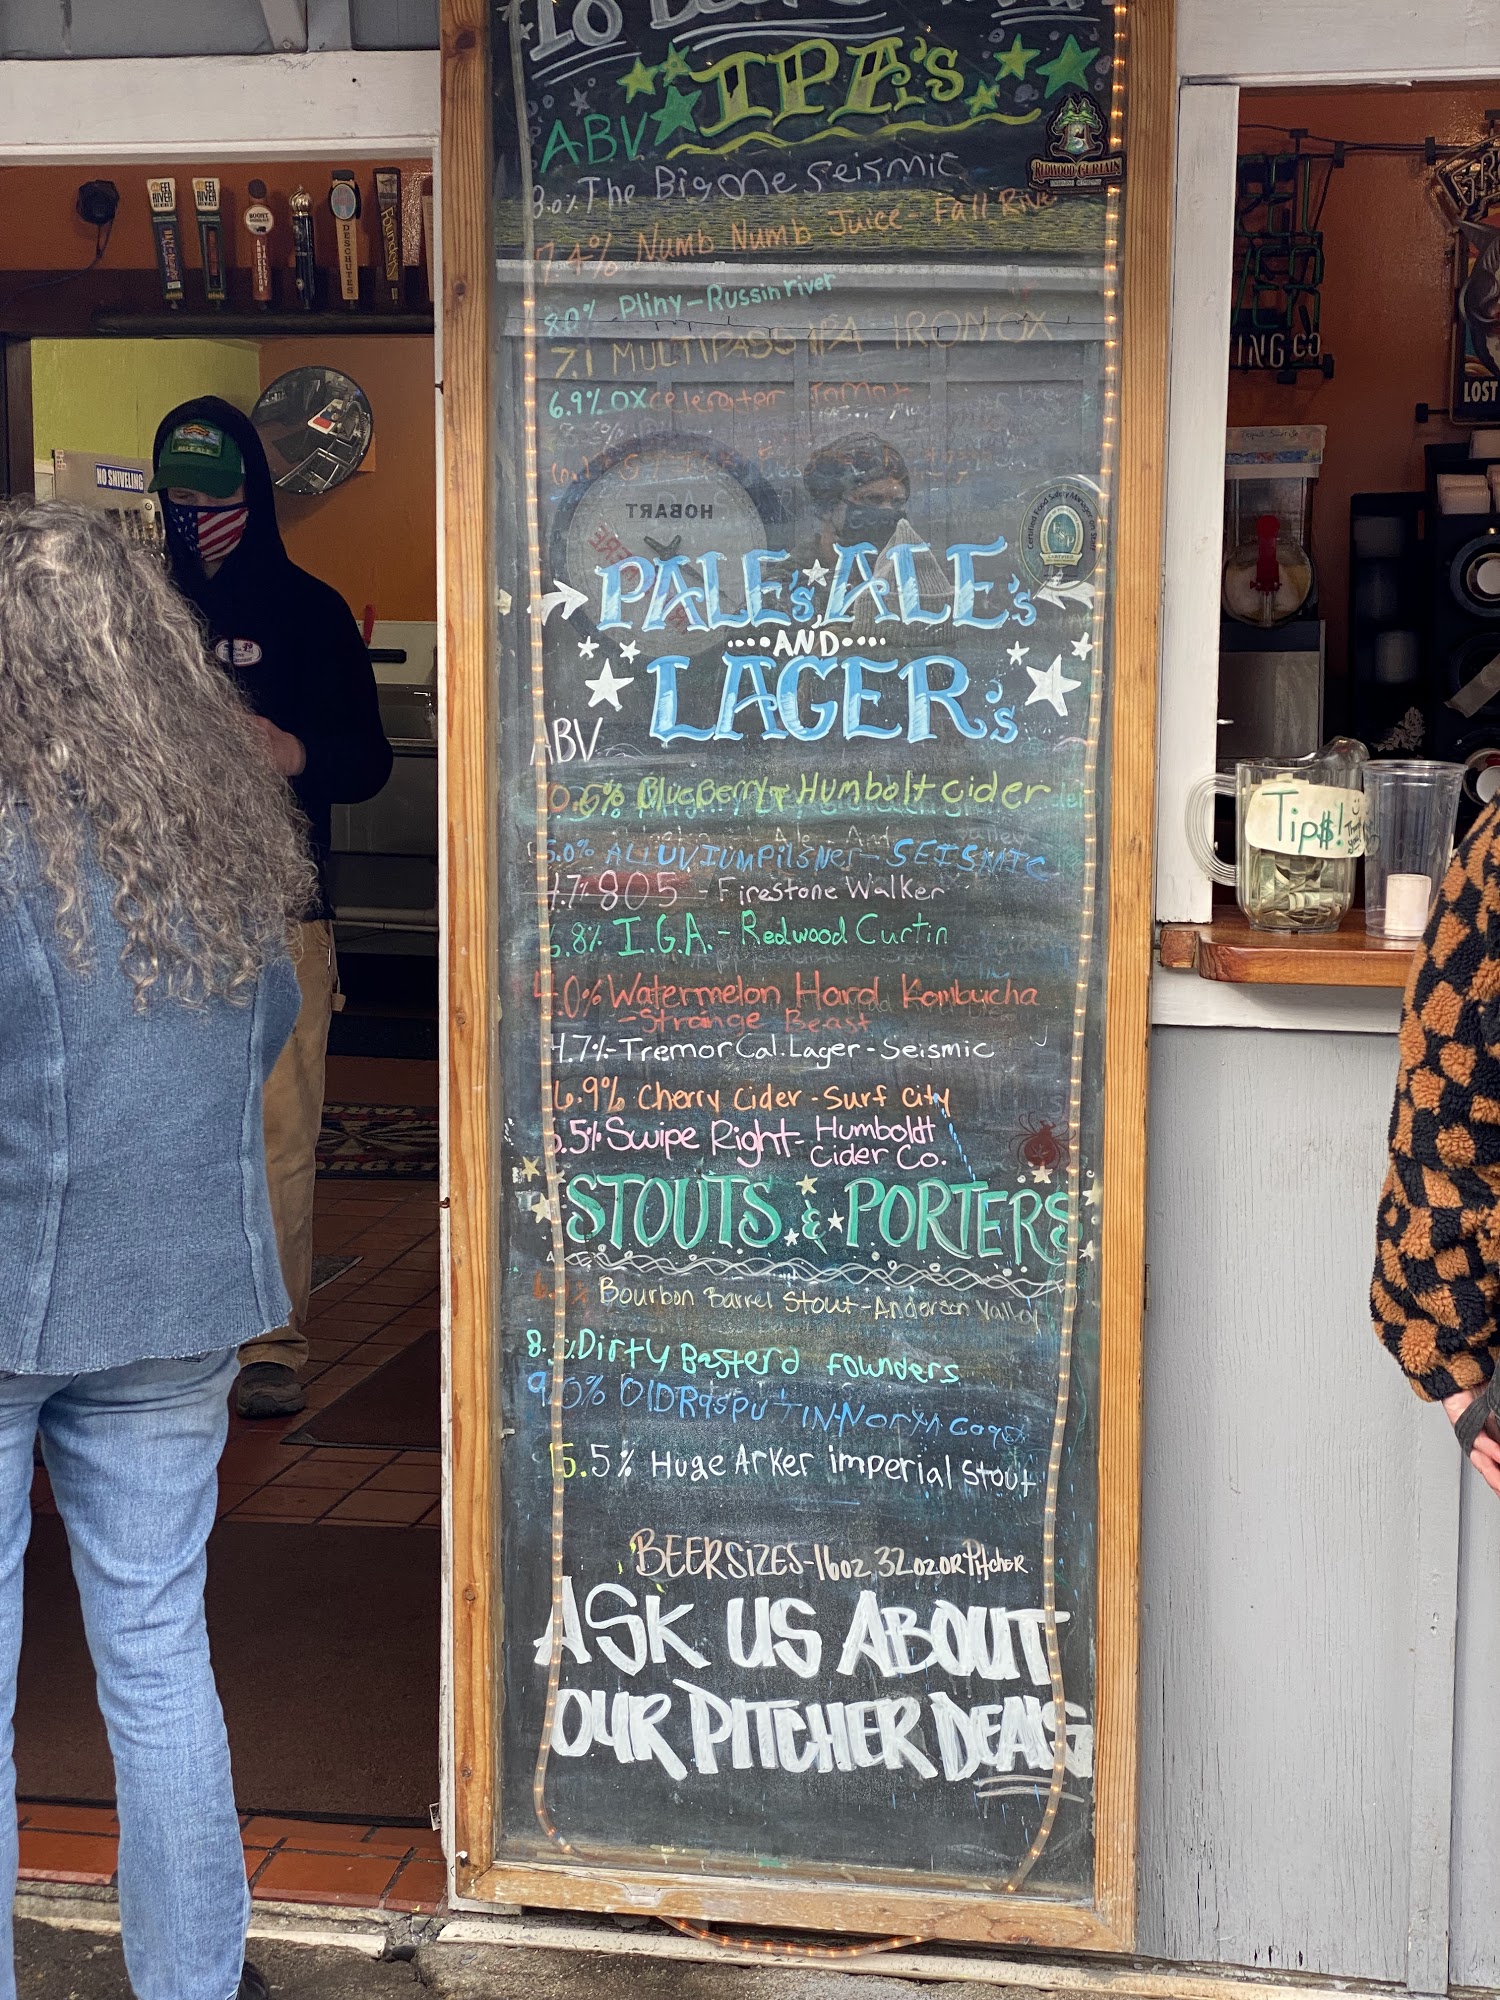 IPA's
ABV
REDWOOD CURTAIN
8.0% The Big One Seismic
7.4% Numb Numb Juice - Fall Rive
8.0% Pliny - Russin river
7.1 MULTIPASS IPA IRON OX
6.9% OXcelerator
DESCHUTES
Founders
NO SNIVELING
HOBART
Certified Food Safety Manager on Duty
PALE'S, ALE's
AND
LAGER's
ABV
BlueBerry Humbolt cider
5.0% ALLUVIUM Pilsner - SEISMIC
4.7% 805 - Firestone Walker
6.8% I.G.A. - Redwood Curtin
4.0% Watermelon Hard Kombucha
- Strange Beast
4.7% - Tremor Cal. Lager - Seismic
6.9% Cherry Cider - Surf city
.5% Swipe Right - Humboldt
Cider Co.
STOUTS & PORTERS
Bourbon Barrel Stout - Anderson Valley
8. Dirty Basterd Founders
9.0% Old Rasputin - North Coast
5.5% Huge Arker imperial Stout
BEER SIZES - 16oz 32oz OR Pitcher
ASK US ABOUT
OUR PITCHER DEALS
ING CO
LOST
Tip$!